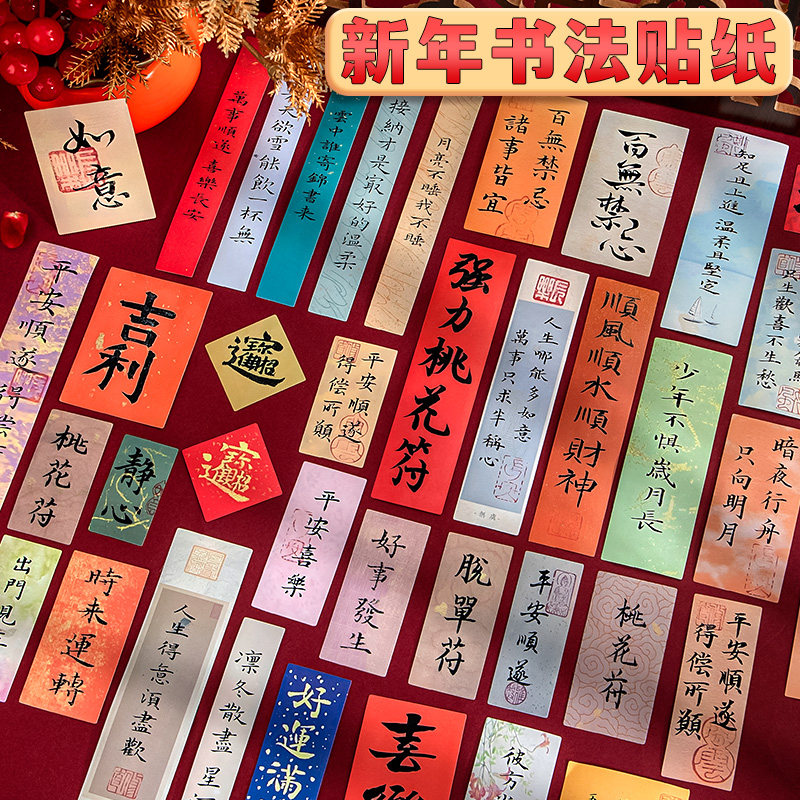 新年书法贴纸
如意
萬事順遂 喜樂長安
天欲雪 能飲一杯無
雲中誰寄錦書来
接納才是最好的溫柔
月亮不睡我不睡
百無禁忌
諸事皆宜
百無禁忌
知足且上進 溫柔且堅定
生歡喜不生愁
平安順遂 得偿
吉利
招財進寶
平安順遂
得偿所願
强力桃花符
長樂
人生哪能多如意
萬事只求半稱心
順風順水順財神
少年不惧歲月長
暗夜行舟
只向明月
桃花符
靜心
招財進寶
平安喜樂
好事發生
脫單符
平安順遂
桃花符
平安順遂
得偿所願
出門見
時来運轉
人生得意須盡歡
凛冬散盡 星
好運滿
喜樂
彼方